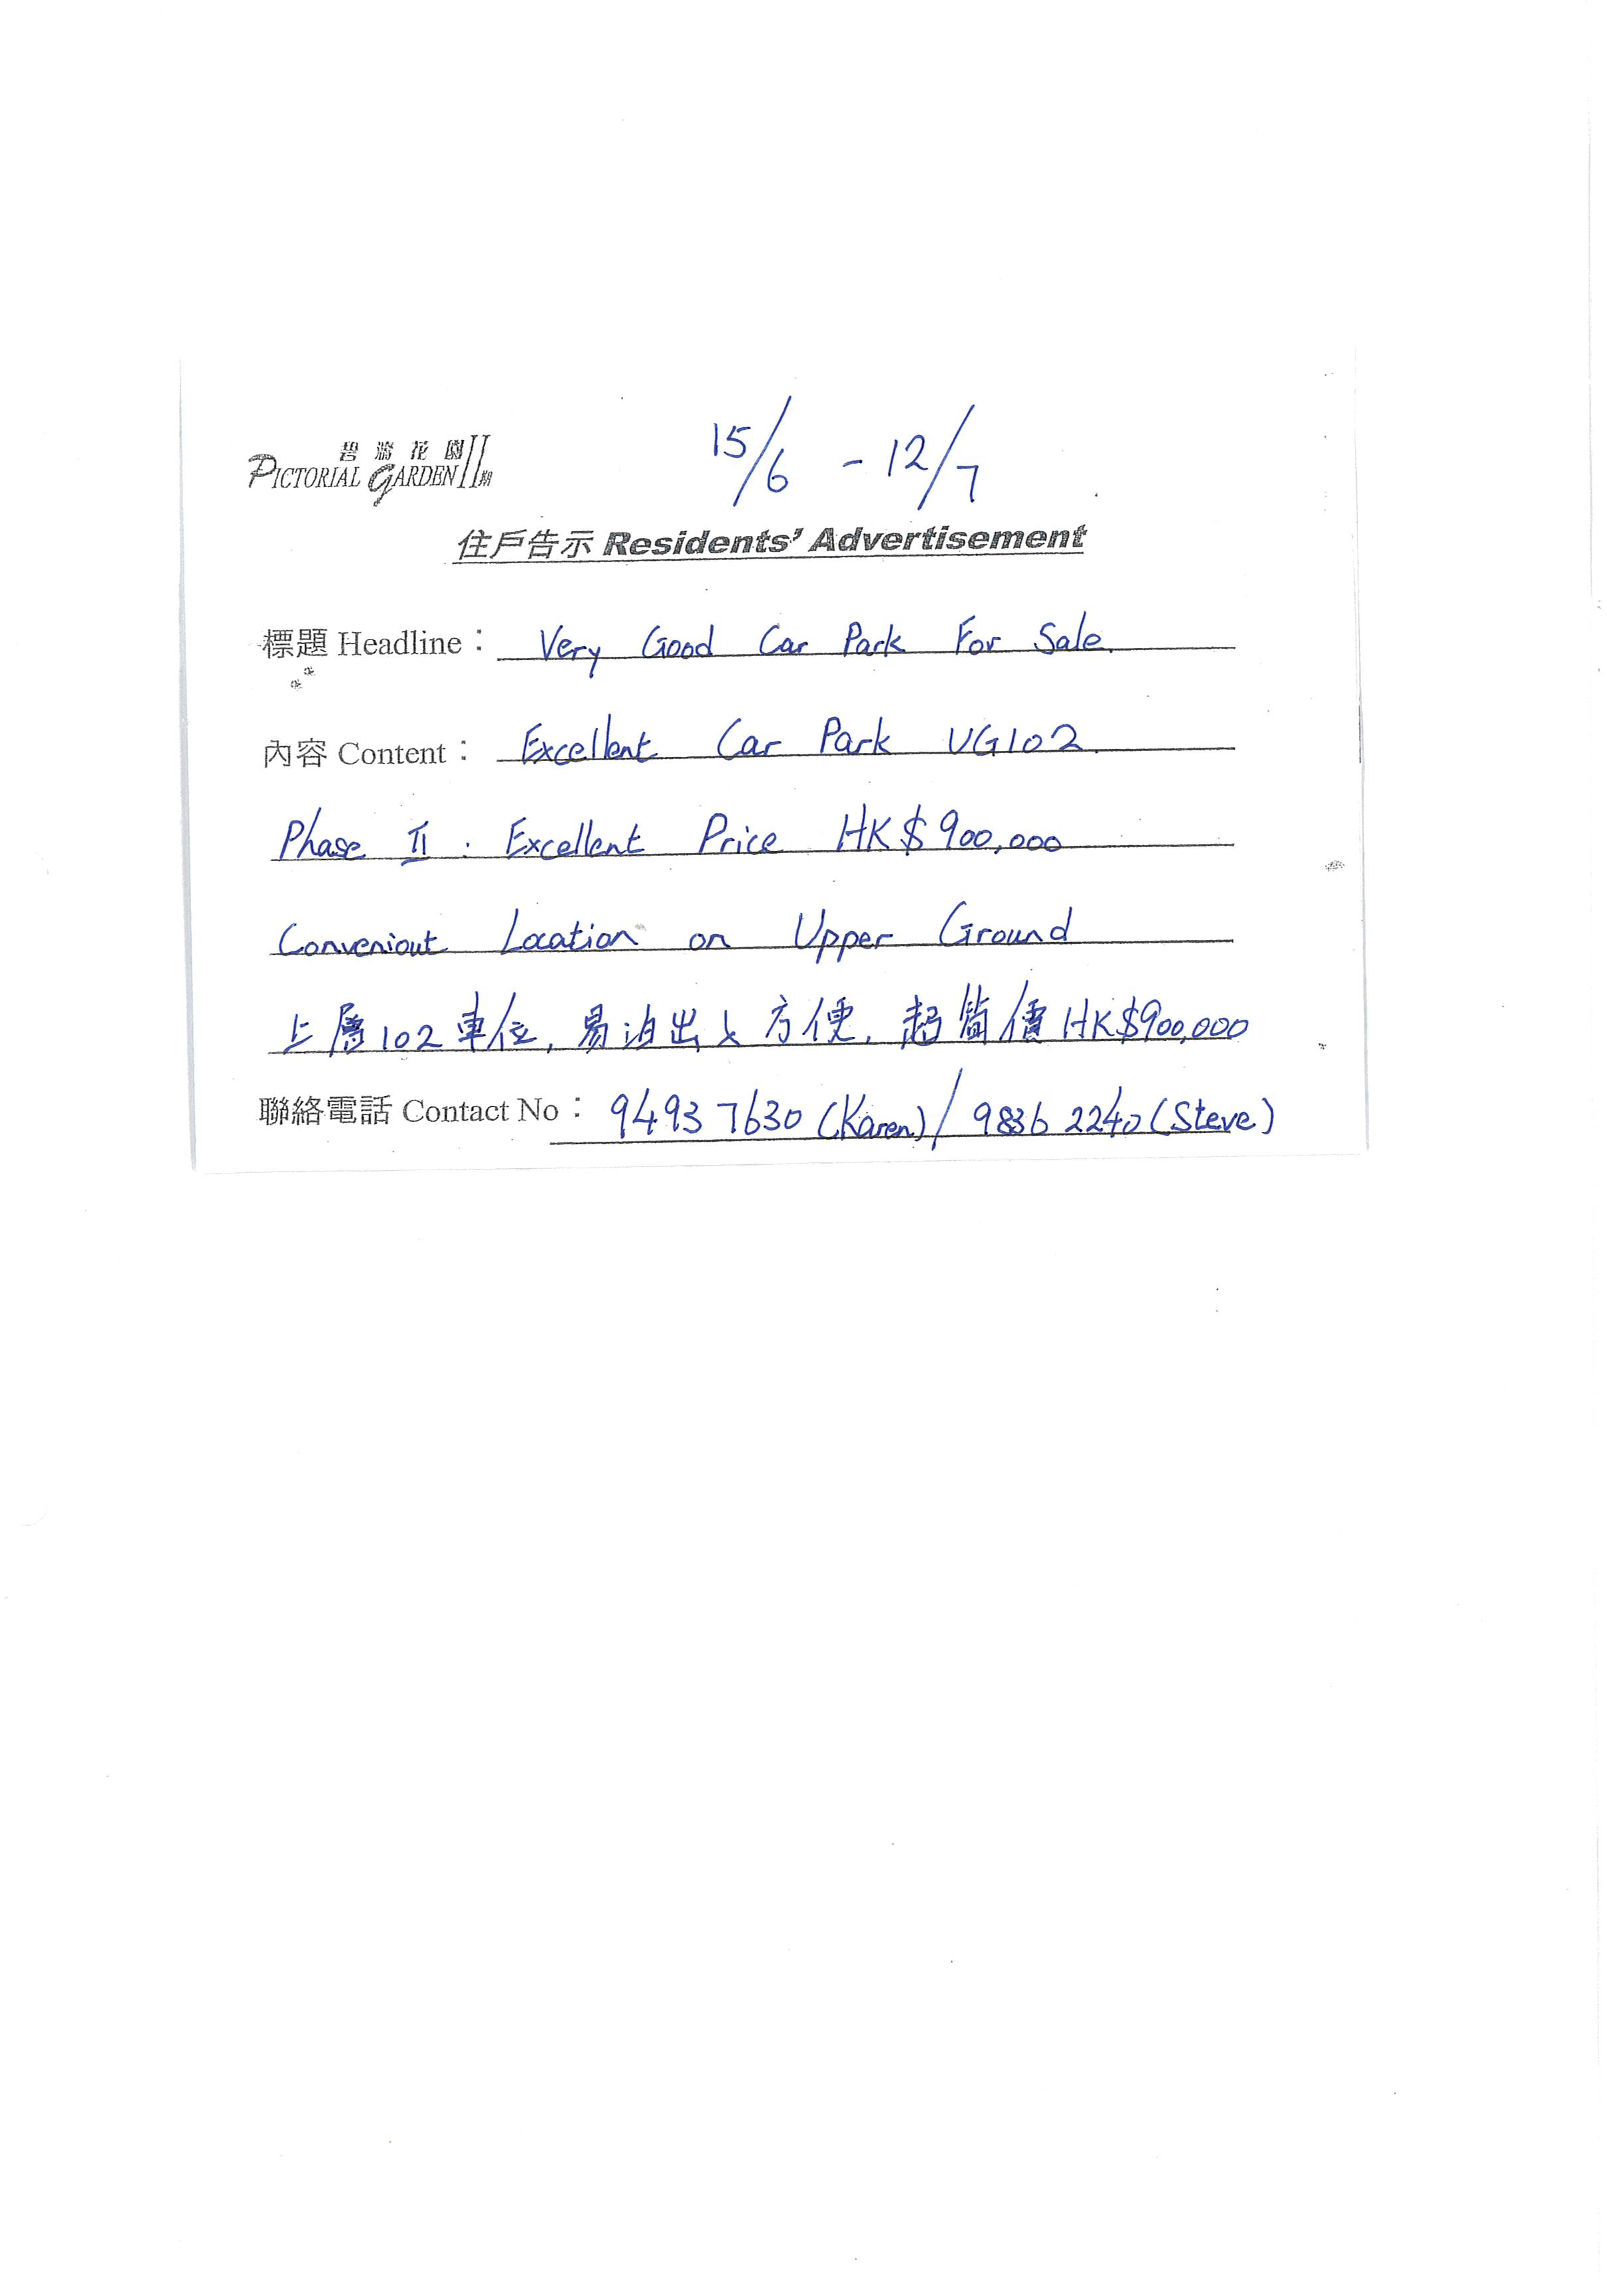 碧濤花園 II 期
PICTORIAL GARDEN
15/6 - 12/7
住戶告示 Residents' Advertisement
標題 Headline： Very Good Car Park For Sale.
內容 Content： Excellent Car Park UG102.
Phase II. Excellent Price HK$900,000
Conveniout Location on Upper Ground
上層102車位, 易泊出入方便, 超筍價HK$900,000
聯絡電話 Contact No： 9493 7630 (Karen) / 9836 2240 (Steve)